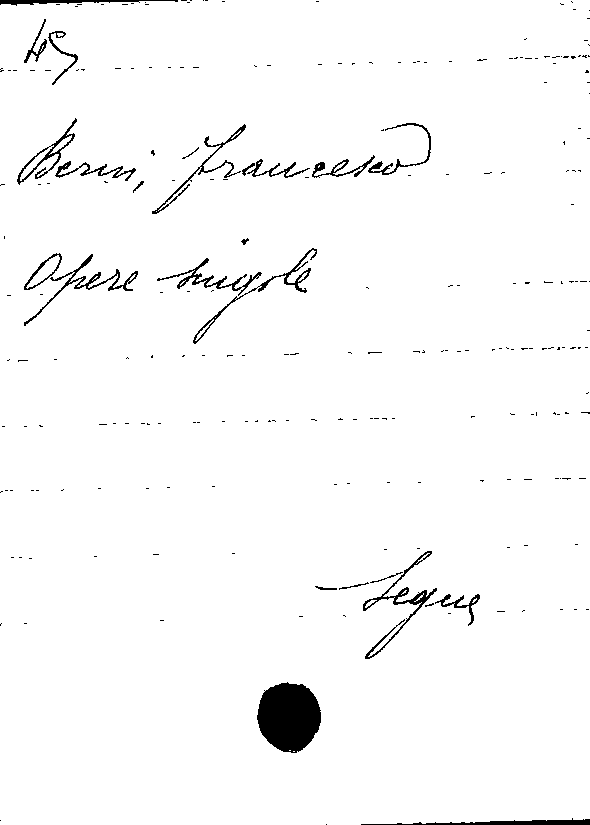 Berni, Francesco
Opere singole
Segue